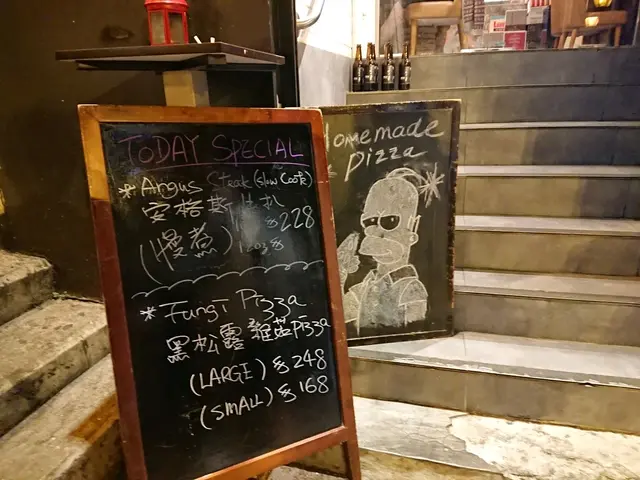 TODAY SPECIAL
* Angus Steak (Slow Cook)
安格斯牛扒
(慢煮) 12oz $228
* Fungi Pizza
黑松露雜菇Pizza
(LARGE) $248
(SMALL) $168
Homemade
Pizza